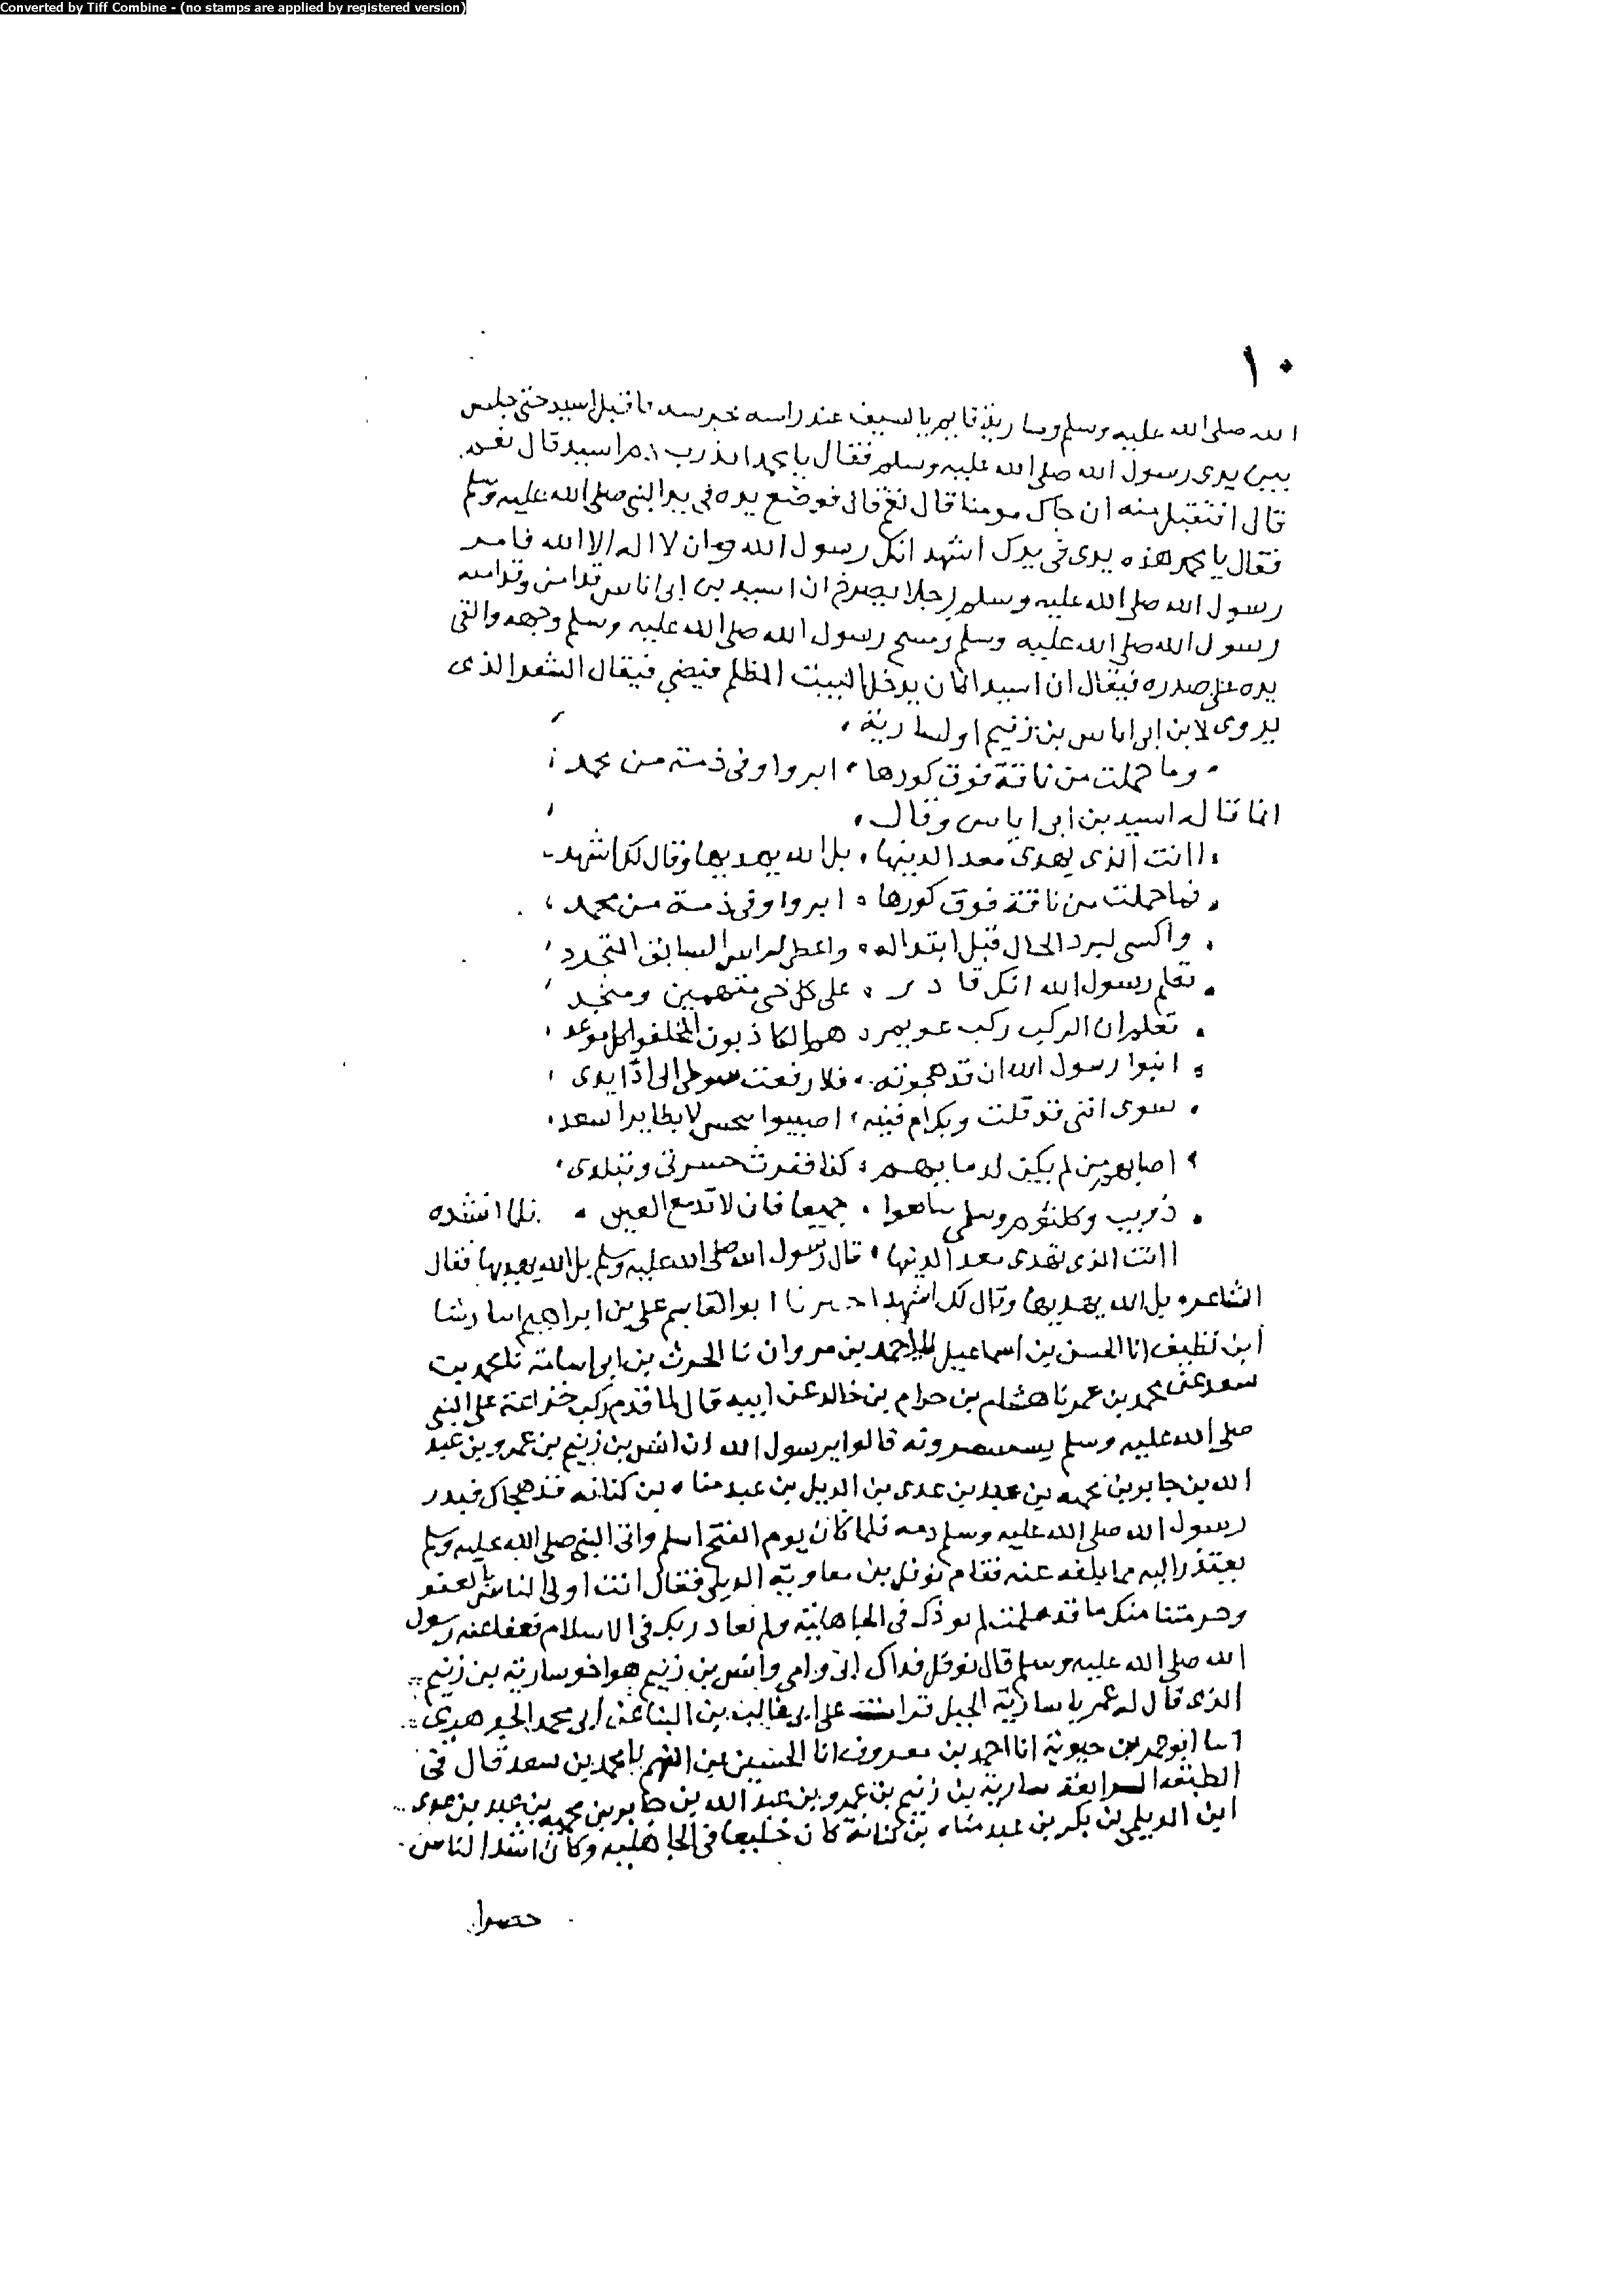 Converted by Tiff Combine - (no stamps are applied by registered version)
١٠
الله صلى الله عليه وسلم وسارية قايم بالسيف عند راسه يحرسه فاقبل اسيد حتى جلس
بين يدى رسول الله صلى الله عليه وسلم فقال يا محمد انذرت دم اسيد قال نعم
قال افتقبل منه ان جاك مومنا قال نعم قال فوضع يده فى يد النبى صلى الله عليه وسلم
فقال يا محمد هذه يدى فى يدك اشهد انك رسول الله وان لا اله الا الله فامر
رسول الله صلى الله عليه وسلم رجلا يصرخ ان اسيد بن ابى اناس قد امن وقد امنه
رسول الله صلى الله عليه وسلم ومسح رسول الله صلى الله عليه وسلم وجهه والقى
يده على صدره فيقال ان اسيدا كان يدخل البيت المظلم فيضى فيقال الشعر الذى
يروى لابن ابى اناس بن زنيم او لسارية
وما حملت من ناقة فوق كورها ابر واوفى ذمة من محمد
انما قاله اسيد بن ابى اياس وقال
اانت الذى يهدى معد الدينها بل الله يهديها وقال لك اشهد
فما حملت من ناقة فوق كورها ابر واوفى ذمة من محمد
واكسى لبرد الحال قبل ابتداله واعطى لراس السابق التجرد
تعلم رسول الله انك قادر على كل حى متهمين ومنجد
تعلم ان الركب ركب عويمر هم الكاذبون المخلفوا كل موعد
انبوا رسول الله ان قد هجوته فلا رفعت سوطى الى اذا يدى
سوى اننى قد قلت ويلم فتية اصيبوا بنحس لا بطاير اسعد
اصابهم من لم يكن لدمايهم كفا فعزت حسرتى وتبلدى
ذويب وكلثوم وسلمى تتابعوا جميعا فان لا تدمع العين فلما انشده
اانت الذى تهدى معد الدينها قال رسول الله صلى الله عليه وسلم بل الله يهديها فقال
الشاعر بل الله يهديها وقال لك اشهد اخبرنا ابو القاسم على بن ابراهيم انا رشا
ابن نظيف انا الحسن بن اسماعيل احمد بن مروان نا الحرث بن ابى اسامة نا محمد بن
سعد عن محمد بن عمر نا هشام بن حرام بن خالد عن ابيه قال لما قدم ركب خزاعة على النبى
صلى الله عليه وسلم يستنصرونه قالوا يرسول الله ان انس بن زنيم بن عمرو بن عبد
الله بن جابر بن محميه بن عبد بن عدى بن الديل بن عبد مناه بن كنانه قد هجاك فهدر
رسول الله صلى الله عليه وسلم دمه فلما كان يوم الفتح اسلم واتى النبى صلى الله عليه وسلم
يعتذر اليه مما بلغه عنه فقام نوفل بن معاوية الديلى فقال انت اولى الناس بالعفو
ومن منا ما قد علمت لم يوذك فى الجاهلية ولم يعادك فى الاسلام فعفا عنه رسول
الله صلى الله عليه وسلم قال نوفل فداك ابى وامى وانس بن زنيم هو اخو سارية بن زنيم
الذى قال له عمر يا سارية الجبل قرات على ابى غالب بن البنا عن ابى محمد الجوهرى
انا ابو عمر بن حيوية انا احمد بن معروف انا الحسين بن الفهم نا محمد بن سعد قال فى
الطبقه الرابعة سارية بن زنيم بن عمرو بن عبد الله بن جابر بن محميه بن عبد بن عدى
ابن الديلى بن بكر بن عبد مناه بن كنانة كان خليعا فى الجاهليه وكان اشد الناس
حضرا